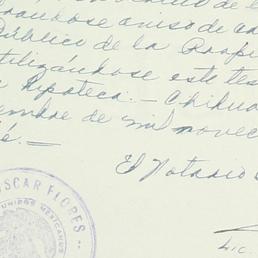 aviso de
Público de la Prop
utilizándose este tes
hipoteca.— Chihua
de mil novec
El Notario
OSCAR FLORES
UNIDOS MEXICANOS
Lic.